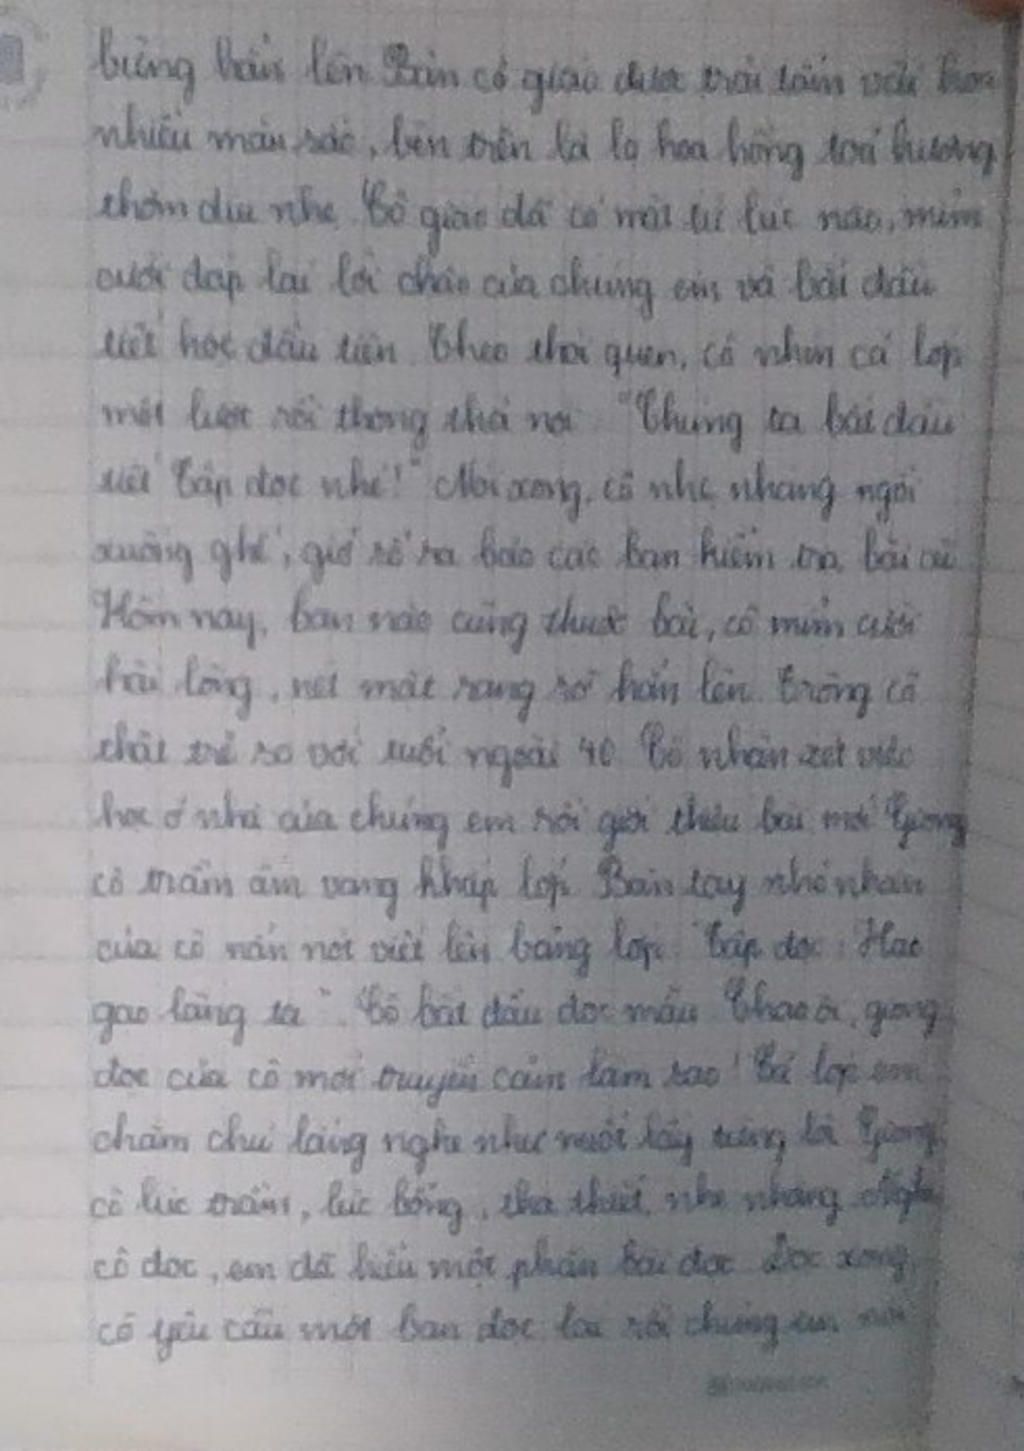 bừng hẳn lên. Bàn cô giáo được trải tấm vải hoa
nhiều màu sắc, bên trên là lọ hoa hồng toả hương
thơm dịu nhẹ. Cô giáo đã có mặt từ lúc nào, mỉm
cười đáp lại lời chào của chúng em và bắt đầu
tiết học đầu tiên. Theo thói quen, cô nhìn cả lớp
một lượt rồi thong thả nói: "Chúng ta bắt đầu
tiết Tập đọc nhé!" Nói xong, cô nhẹ nhàng ngồi
xuống ghế, giở sổ ra báo các bạn kiểm tra bài cũ.
Hôm nay, bạn nào cũng thuộc bài, cô mỉm cười
hài lòng, nét mặt rạng rỡ hẳn lên. Trông cô
thật trẻ so với tuổi ngoài 40. Cô nhận xét việc
học ở nhà của chúng em rồi giới thiệu bài mới. Giọng
cô trầm ấm vang khắp lớp. Bàn tay nhỏ nhắn
của cô nắn nót viết lên bảng lớp: "Tập đọc: Hạt
gạo làng ta". Cô bắt đầu đọc mẫu. Chao ôi, giọng
đọc của cô mới truyền cảm làm sao! Cả lớp em
chăm chú lắng nghe như nuốt lấy từng lời. Giọng
cô lúc trầm, lúc bổng, tha thiết, nhẹ nhàng. Nghe
cô đọc, em đã hiểu một phần bài đọc. Đọc xong,
cô yêu cầu một bạn đọc lại rồi chúng em